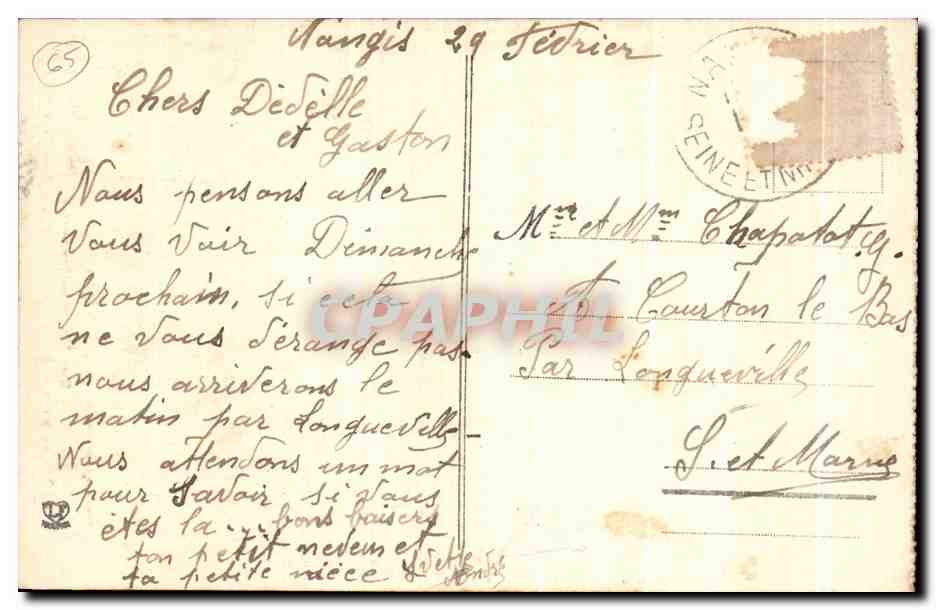 65
Nangis 29 Février
Chers Dédèlle
et Gaston
Nous pensons aller
vous voir Dimanche
prochain, si cela
ne vous dérange pas.
nous arriverons le
matin par Longueville
Nous attendons un mot
pour savoir si vous
êtes la... bons baisers
ton petit neveu et
ta petite nièce
André
SEINE ET
Mr et Mme Chapotot. G.
Courton le Bas
Par Longueville
S. et Marne
CPAPHIL